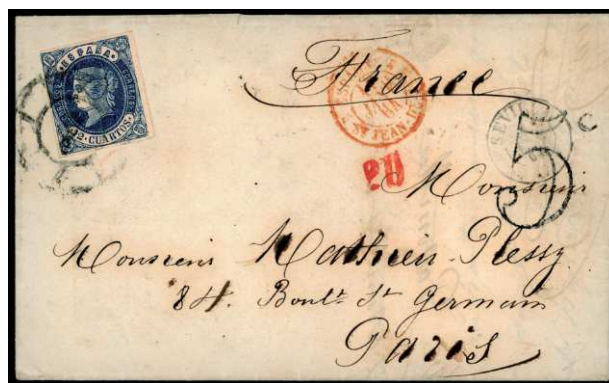 ESPAÑA
12 CUARTOS
France
ST JEAN
PD
SEVILLA
5
C
Monsieur
Monsieur Mathieu-Plessy
84. Boult. St Germain
Paris